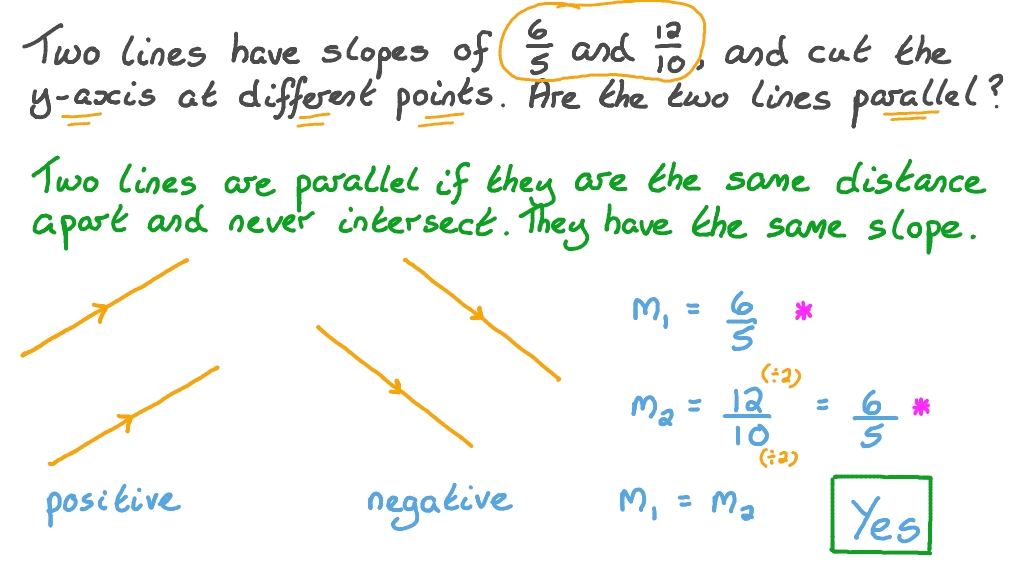 Two lines have slopes of 6/5 and 12/10, and cut the
y-axis at different points. Are the two lines parallel?
Two lines are parallel if they are the same distance
apart and never intersect. They have the same slope.
m₁ = 6/5 *
m₂ = 12/10 (÷2) (÷2) = 6/5 *
positive
negative
m₁ = m₂
Yes